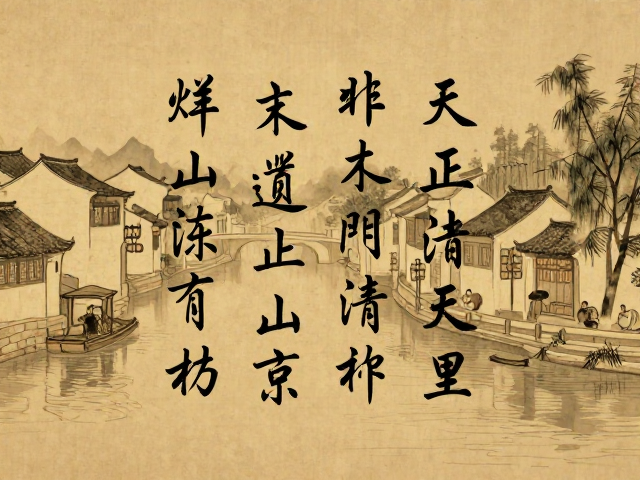 天正渚天里
非木門清祢
末遺止山京
烊山涷有枋